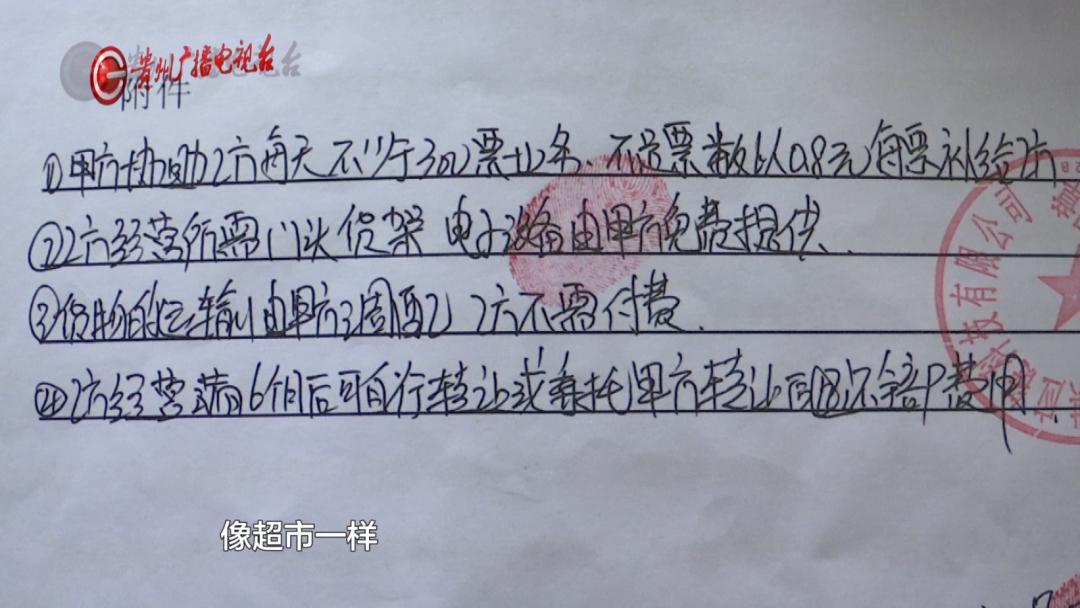 贵州广播电视台
附件
①甲方协助乙方每天不少于300票业务、不足票数以0.8元每票补给乙方
②乙方经营所需门头货架 电子设备由甲方免费提供、
③货物的运输由甲方调配 乙方不需付费、
④乙方经营满6个月后可自行转让或委托甲方转让 客户费用、
科技有限公司
像超市一样